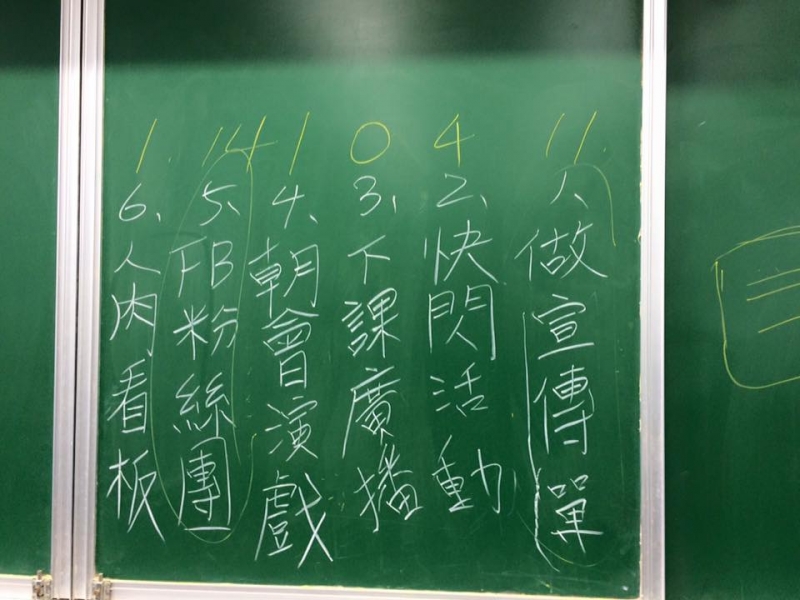 11
1、做宣傳單
4
2、快閃活動
0
3、下課廣播
1
4、朝會演戲
14
5、FB粉絲團
1
6、人肉看板